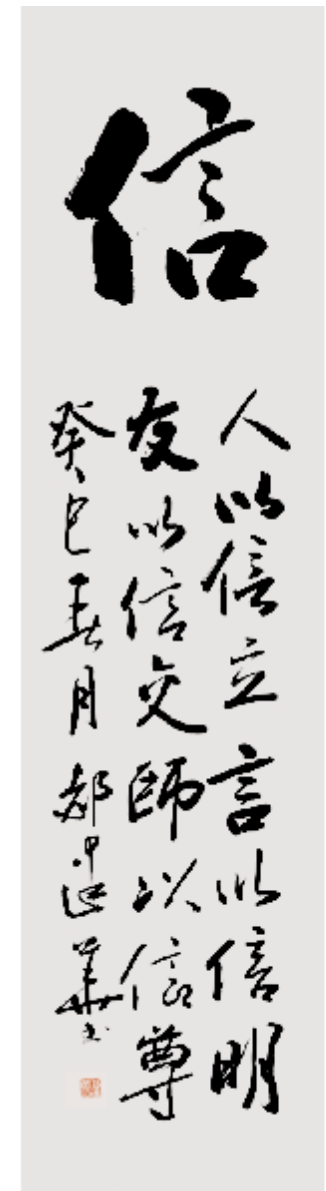 信
人以信立言以信明
友以信交师以信尊
癸巳春月郝建華书